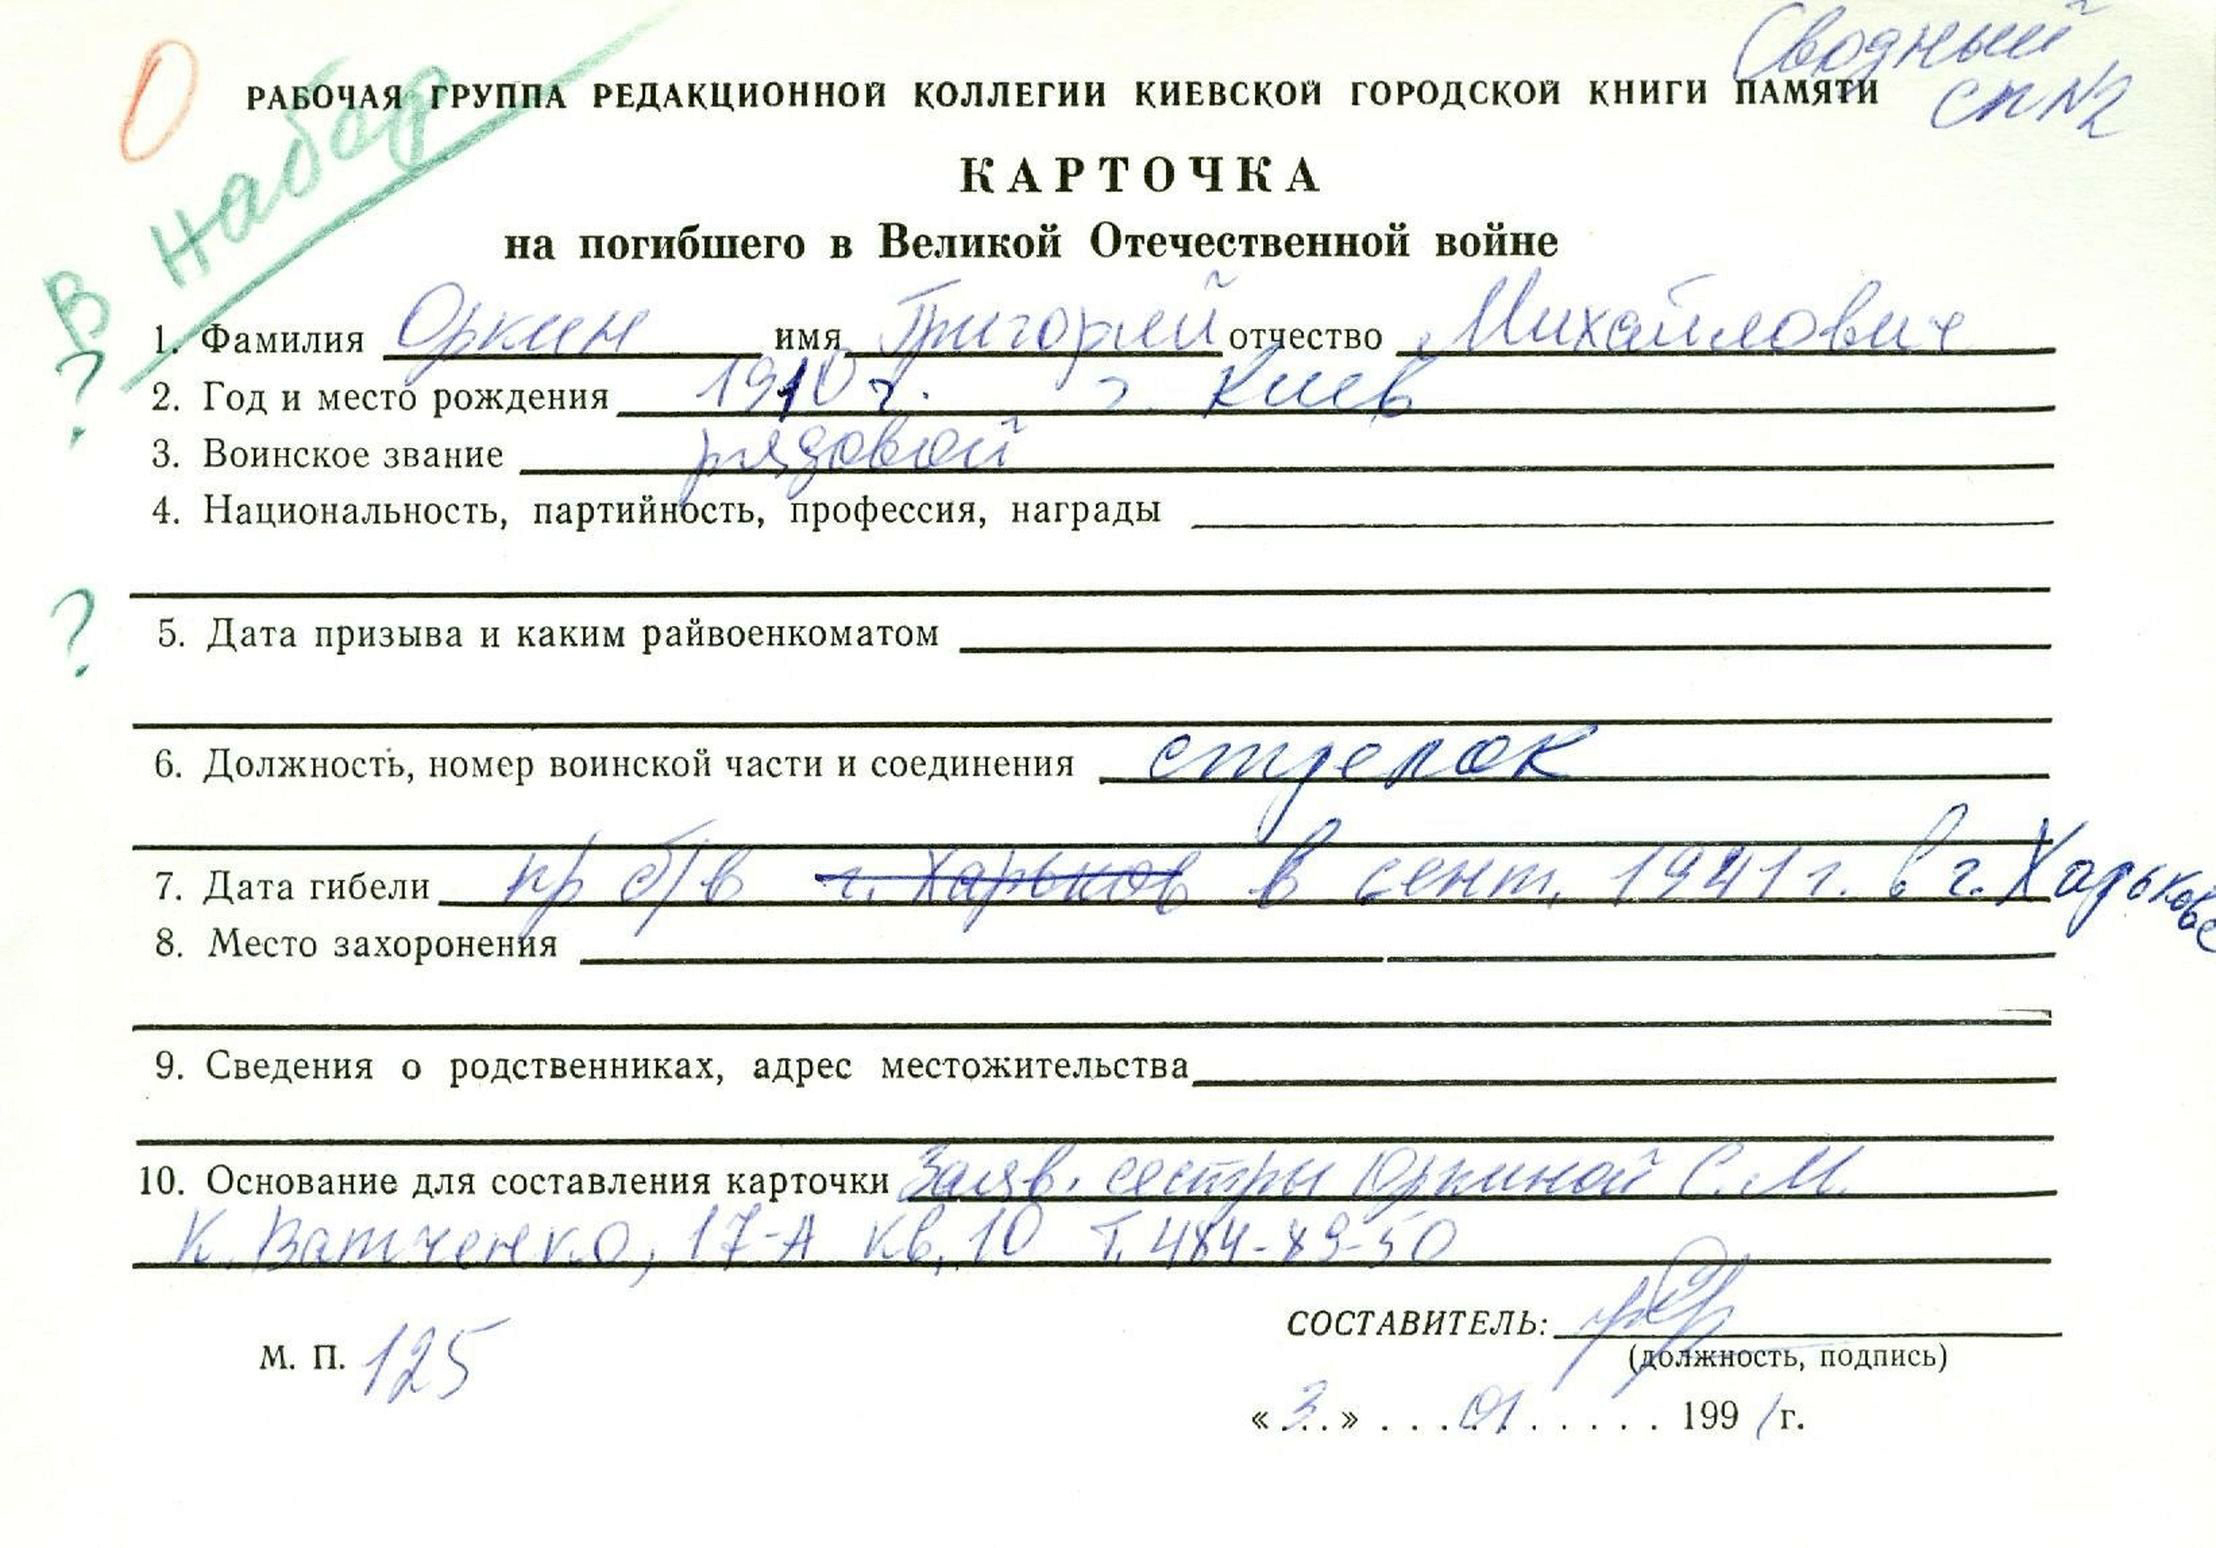 О
В набор
Сводный
сп №2
РАБОЧАЯ ГРУППА РЕДАКЦИОННОЙ КОЛЛЕГИИ КИЕВСКОЙ ГОРОДСКОЙ КНИГИ ПАМЯТИ
КАРТОЧКА
на погибшего в Великой Отечественной войне
1. Фамилия Оркин имя Григорий отчество Михайлович
?
2. Год и место рождения 1910 г. г. Киев
3. Воинское звание рядовой
4. Национальность, партийность, профессия, награды
?
5. Дата призыва и каким райвоенкоматом
6. Должность, номер воинской части и соединения стрелок
7. Дата гибели пр б/в г. Харьков в сент. 1941 г. в г. Харькове
8. Место захоронения
9. Сведения о родственниках, адрес местожительства
10. Основание для составления карточки Заяв. сестры Оркиной С. М.
К. Ватченко, 17-А кв. 10 т. 484-89-50
СОСТАВИТЕЛЬ:
М. П. 125
(должность, подпись)
« 3 » . . . 01 . . . . . 1991 г.